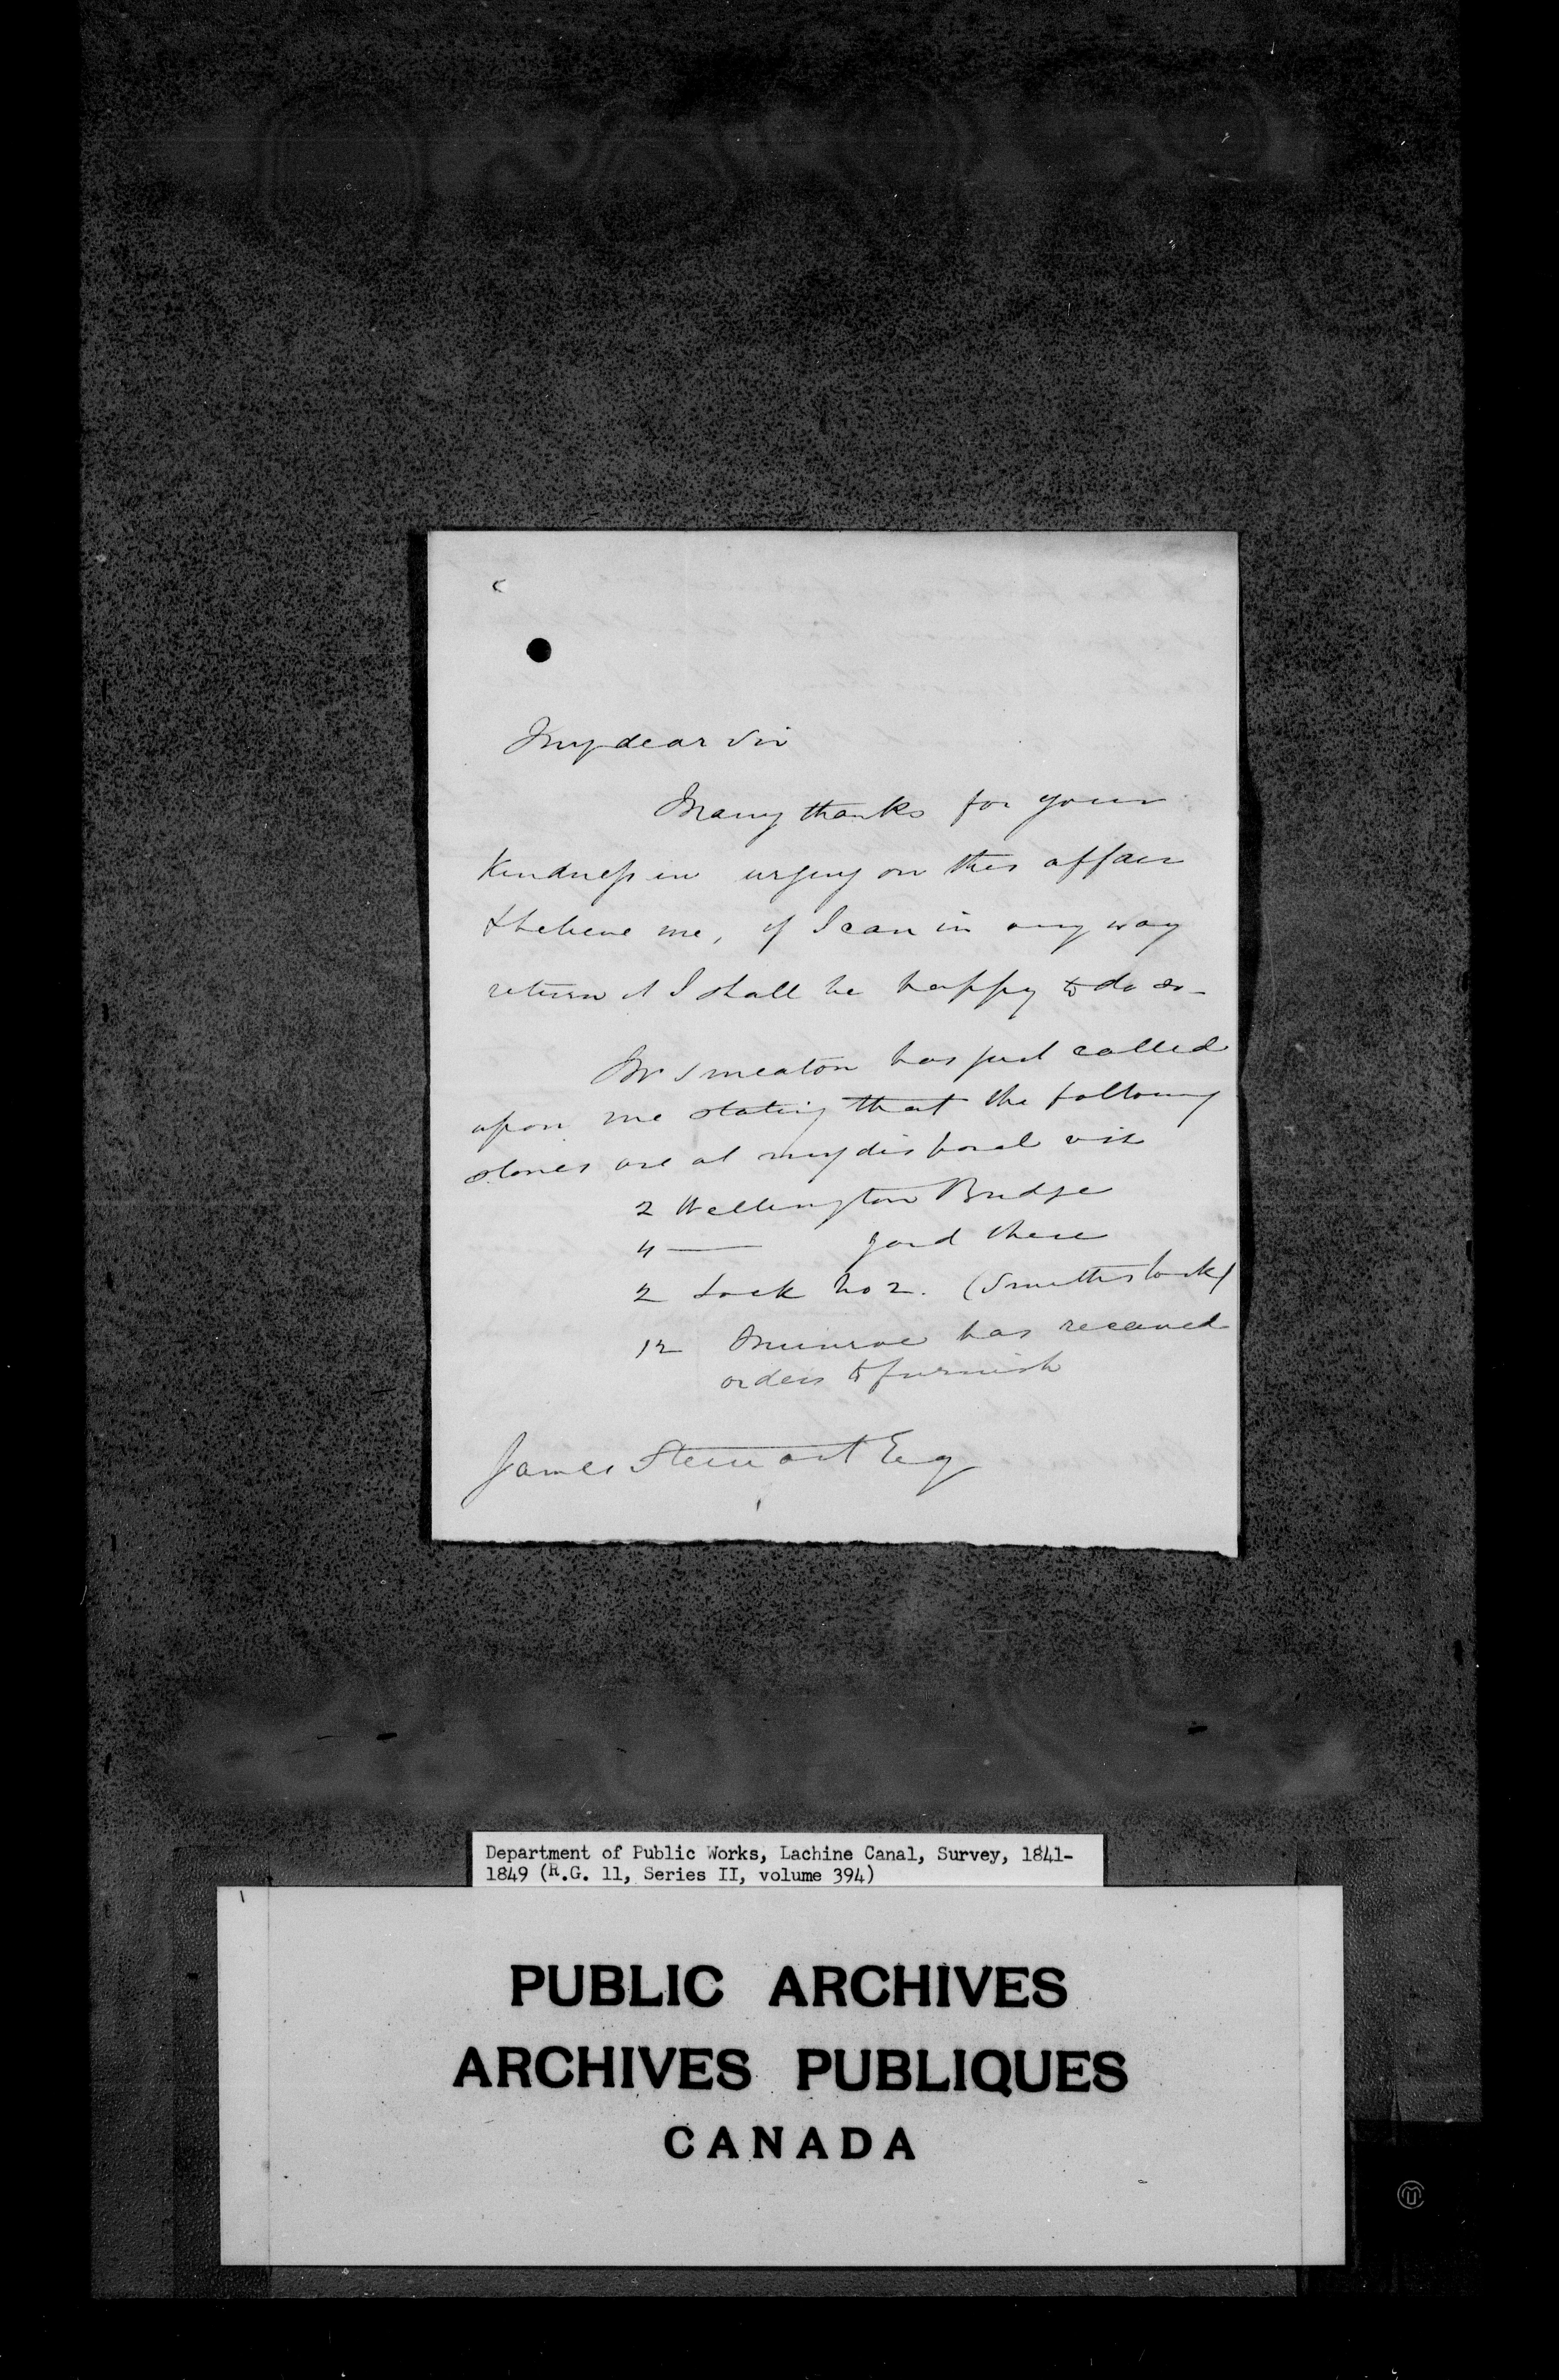 My dear Sir
Many thanks for your
Kindness in urging on this affair
& believe me, if I can in any way
return it I shall be happy to do so -
Mr Smeaton has just called
upon me stating that the following
stones are at my disposal viz
2 Wellington Bridge
4 — yard there
2 Lock No 2. (Smiths lock)
12 Munroe has received
orders to furnish
James Stewart Esq
Department of Public Works, Lachine Canal, Survey, 1841-
1849 (R.G. 11, Series II, volume 394)
PUBLIC ARCHIVES
ARCHIVES PUBLIQUES
CANADA